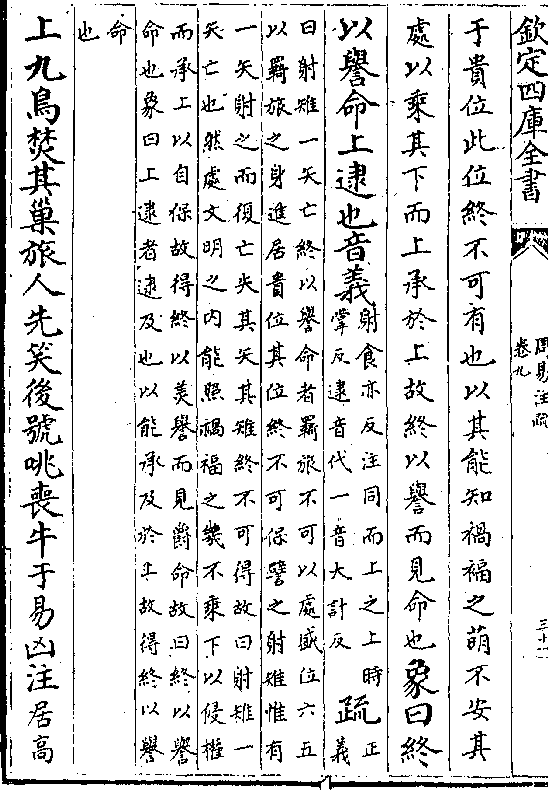 欽定四庫全書
周易注疏
卷九
于貴位此位終不可有也以其能知禍福之萌不安其
處以乘其下而上承於上故終以譽而見命也象曰終
以譽命上逮也音義射食亦反注同而上之上時掌反逮音代一音大計反疏正義
曰射雉一矢亡終以譽命者羇旅不可以處盛位六五
以羇旅之身進居貴位其位終不可保譬之射雉惟有
一矢射之而復亡失其矢其雉終不可得故曰射雉一
矢亡也然處文明之内能照禍福之幾不乘下以侵權
而承上以自保故得終以美譽而見爵命故曰終以譽
命也象曰上逮者逮及也以能承及於上故得終以譽
命
也
上九鳥焚其巢旅人先笑後號咷喪牛于易凶注居高